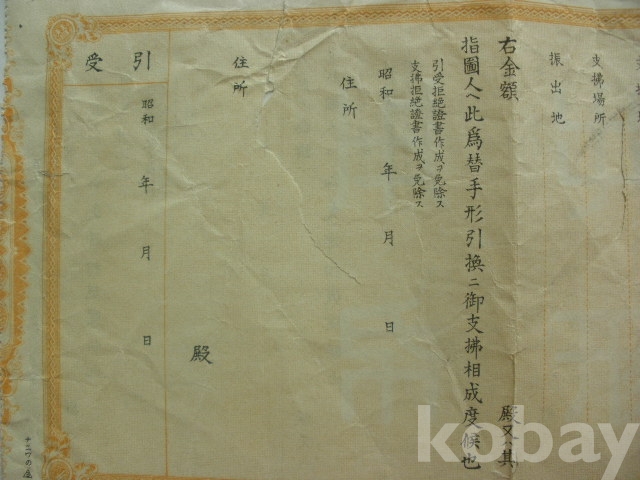 支拂場所
振出地
右金額 殿又ハ其
指圖人ヘ此爲替手形引換ニ御支拂相成度候也
引受拒絶證書作成ヲ免除ス
支拂拒絶證書作成ヲ免除ス
昭和 年 月 日
住所
住所
殿
引受
昭和 年 月 日
kobay